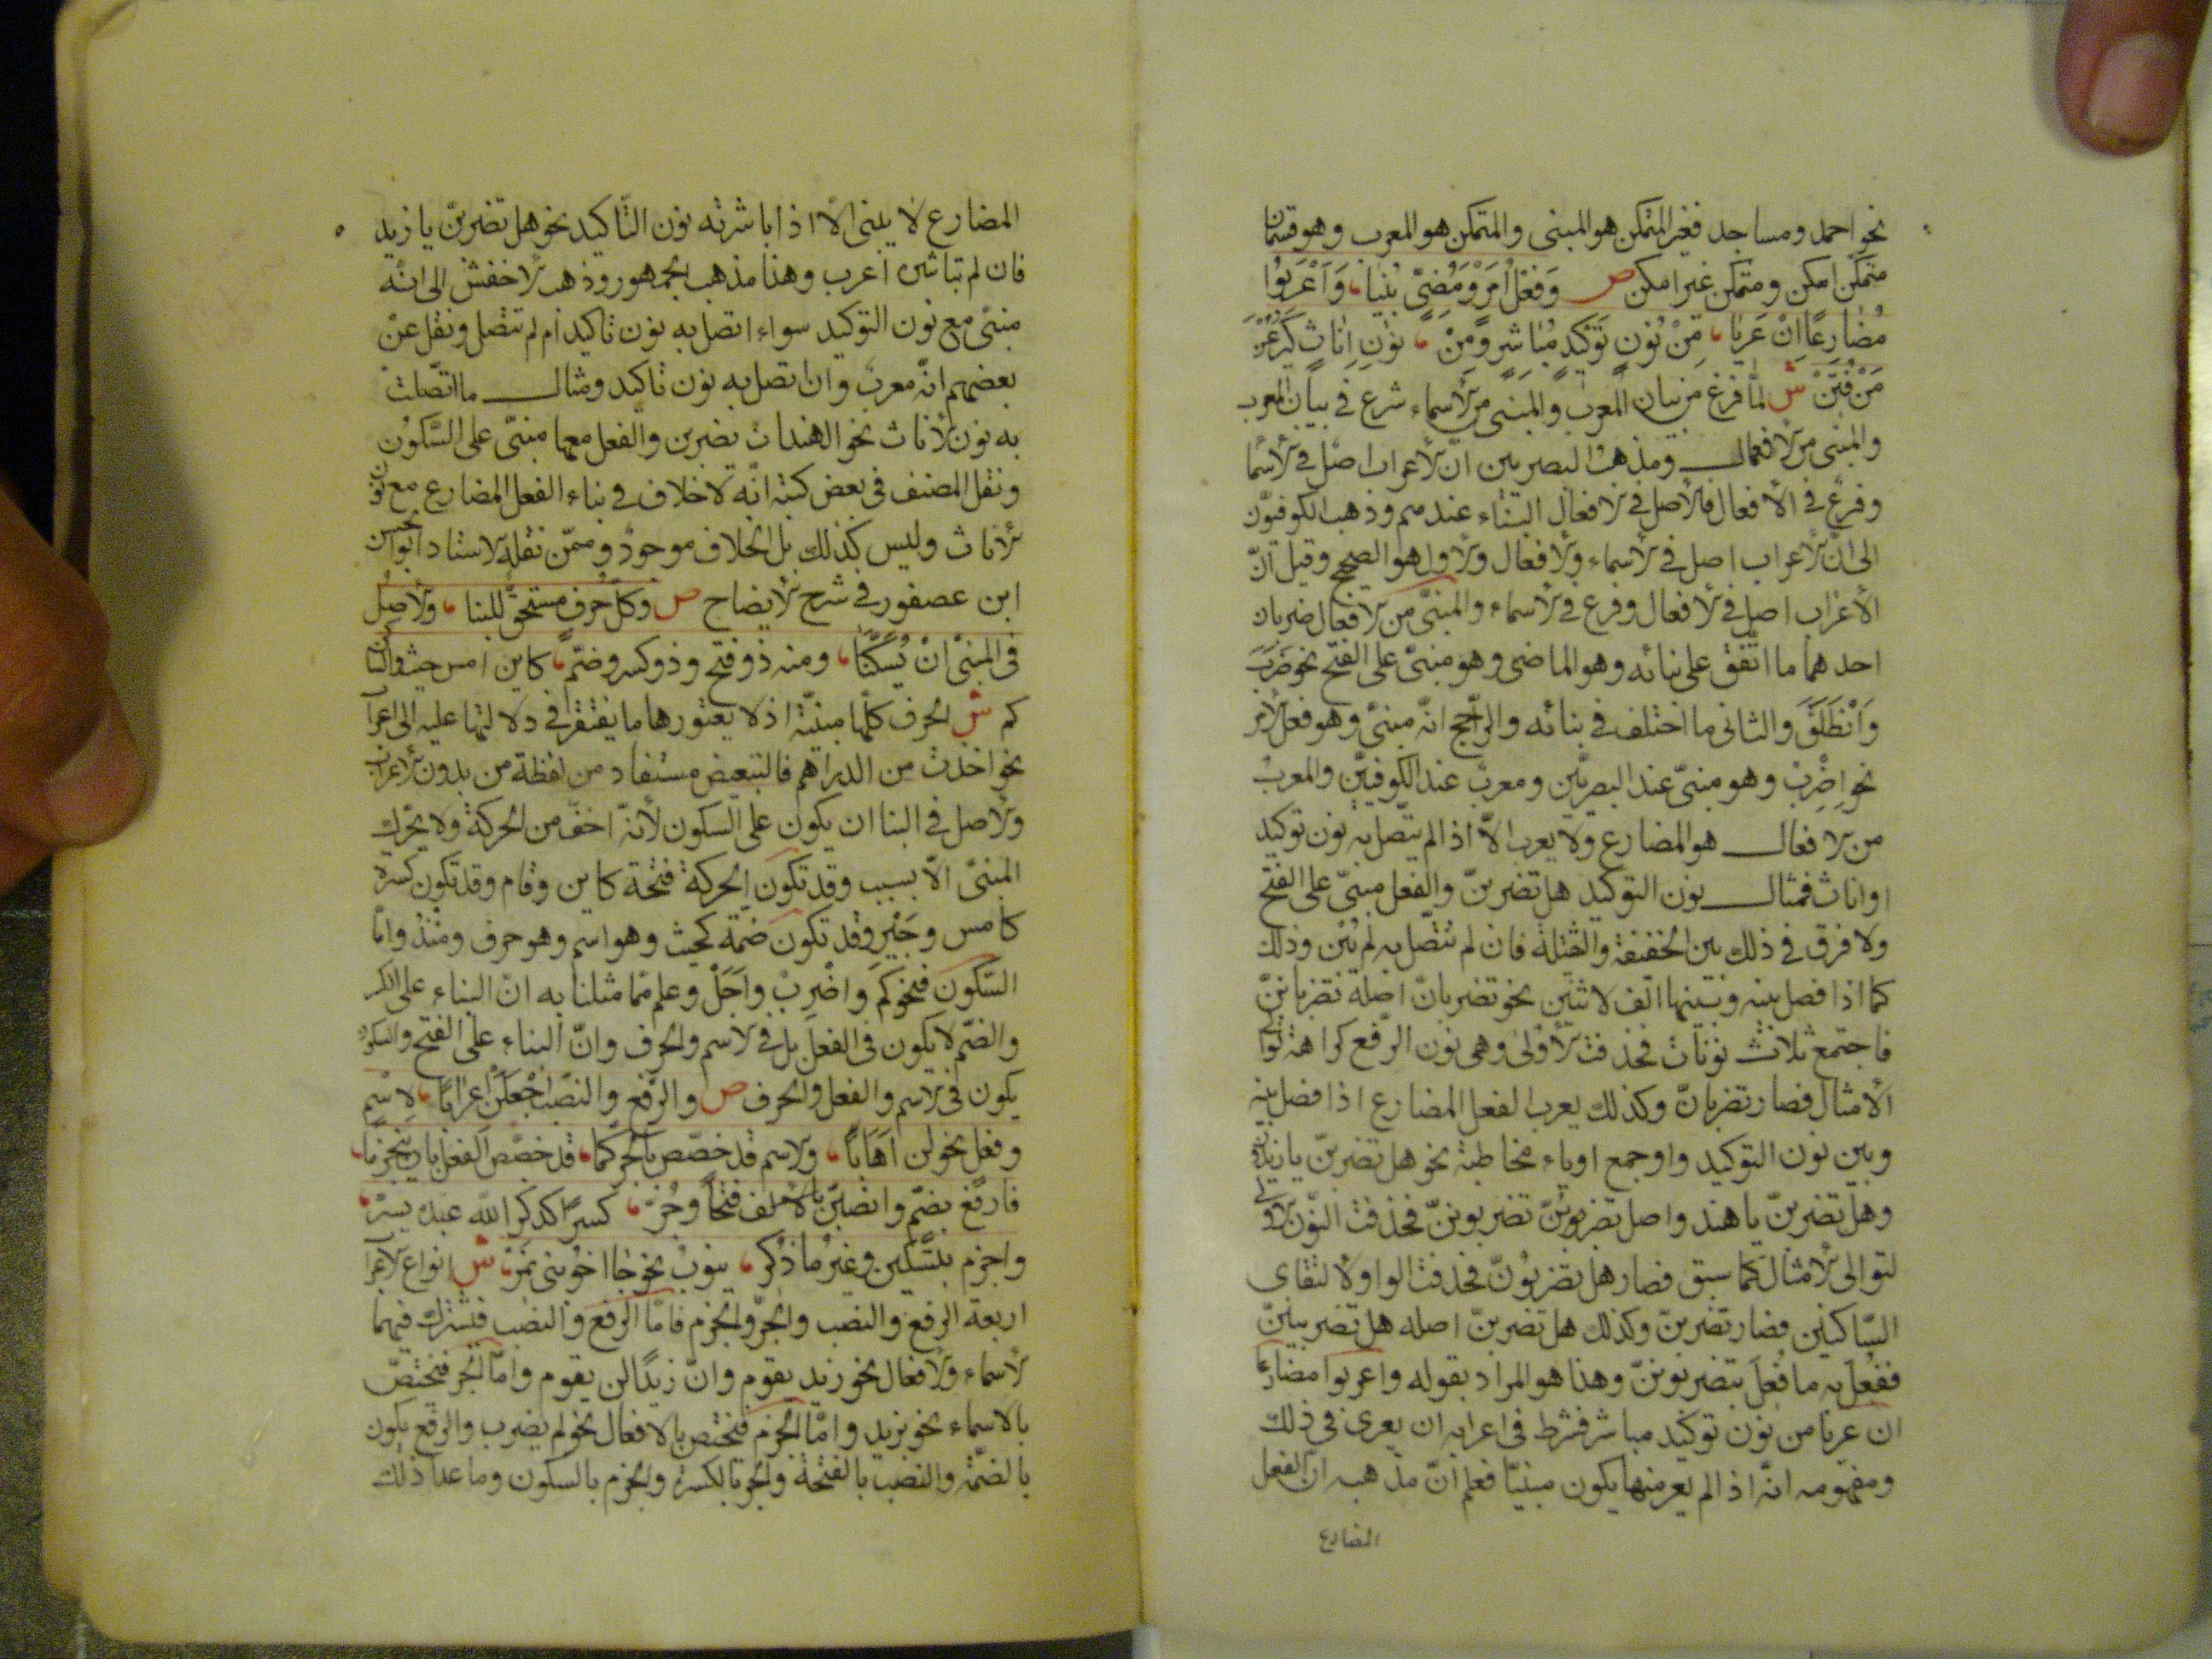 نحو احمد ومساجد فغير المتمكن هو المبنى والمتمكن هو المعرب وهو قسمان
متمكن امكن ومتمكن غير امكن ص وَفِعْلُ اَمْرٍ وَمُضِىٍّ بُنِيَا، وَاَعْرَبُوا
مُضَارِعًا اِنْ عَرِيَا، مِنْ نُونِ تَوْكِيدٍ مُبَاشِرٍ وَمِنْ، نُونِ اِنَاثٍ كَيَرُعْنَ
مَنْ فُتِنْ ش لمّا فرغ من بيان المعرب والمبنى من الأسماء شرع فى بيان المعرب
والمبنى من الأفعال ومذهب البصريين انّ الأعراب اصل فى الأسما
وفرع فى الأفعال فالأصل فى الافعال البناء عندهم وذهب الكوفيّون
الى انّ الأعراب اصل فى الأسماء والأفعال والأول هو الصحيح وقيل انّ
الأعراب اصل فى الأفعال وفرع فى الأسماء والمبنىّ من الأفعال ضربان
احدهما ما اتّفق على بنائه وهو الماضى وهو مبنىّ على الفتح نحو ضَرَبَ
وَانْطَلَقَ والثانى ما اختلف فى بنائه والراجح انّه مبنىّ وهو فعل الأمر
نحو اِضْرِبْ وهو مبنىّ عند البصريّين ومعربٌ عند الكوفيّين والمعربُ
من الافعال هو المضارع ولا يعرب الاّ اذا لم يتّصل به نون توكيد
او اناث فمثال نون التوكيد هل تضربنّ والفعل مبنىّ على الفتح
ولا فرق فى ذلك بين الخفيفة والثقيلة فان لم تتّصل به لم يُبْنَ وذلك
كما اذا فصل بينه وبينها الف الاثنين نحو تضربانّ اصله تضرباننّ
فاجتمع ثلاث نونات فحذفت الأولى وهى نون الرّفع كراهة توالى
الأمثال فصار تضربانّ وكذلك يعرب الفعل المضارع اذا فصل بينه
وبين نون التوكيد واو جمع او ياء مخاطبة نحو هل تضربنّ يا زيدون
وهل تضربنّ يا هند واصل تضربونّ تضربوننّ فحذفت النّون الاولى
لتوالى الأمثال كما سبق فصار هل تضربونّ فحذفت الواو لالتقاى
السّاكنين فصار تضربنّ وكذلك هل تضربنّ اصله هل تضربيننّ
ففعل به ما فعل بتضربوننّ وهذا هو المراد بقوله واعربوا مضارعًا
ان عريا من نون توكيد مباشر فشرط فى اعرابه ان يعرى فى ذلك
ومفهومه انّه اذا لم يعر منها يكون مبنيّا فعلم انّ مذهبه انّ الفعل
المضارع
المضارع لا يبنى الّا اذا باشرته نون التّاكيد نحو هل تضربنّ يا زيد
فان لم تباشره اعرب وهذا مذهب الجمهور وذهب الأخفش الى انّه
مبنىّ مع نون التوكيد سواء اتصل به نون تاكيد ام لم تتصل ونقل عن
بعضهم انّه معرب وان اتصل به نون تاكيد ومثال ما اتّصلت
به نون الأناث نحو الهندات يضربن والفعل معها مبنىّ على السّكون
ونقل المصنف فى بعض كتبه انّه لا خلاف فى بناء الفعل المضارع مع نون
الأناث وليس كذلك بل الخلاف موجودٌ وممّن نقله الاستاد ابوالحسن
ابن عصفور فى شرح الأيضاح ص وكلّ حرف مستحقّ للبنا، والأصل
فى المبنىّ انْ يُسَكَّنَا، ومنه ذو فتح وذو كسر وضمّ، كاين امس حيث والساكن
كم ش الحرف كلّها مبنيّة اذ لا يعتورها ما يفتقر فى دلالتها عليه الى اعراب
نحو اخذت من الدراهم فالتبعيض مستفاد من لفظة من بدون الأعراب
والأصل فى البنا ان يكون على السّكون لأنّه اخفّ من الحركة ولا يحرّك
المبنىّ الاّ بسبب وقد تكون الحركة فتحة كاين وقام وقد تكون كسرة
كامس وجَيْرِ وقد تكون ضمّة كحيث وهو اسم وهو حرف ومنذ وامّا
السّكون فنحو كم واضْرِبْ واَجَلْ وعلم ممّا مثلنا به انّ البناء على الكسر
والضّم لا يكون فى الفعل بل فى الاسم والحرف وانّ البناء على الفتح والسكون
يكون فى الاسم والفعل والحرف ص والرّفع والنصبَ اجْعَلَنْ اِعْرابًا، لاسْمٍ
وفعلٍ نحو لن اَهَابَا، والاسم قد خصّص بالجرّ كما، قد خصّص الفعل بان ينجزما،
فارفع بضمّ وانصبنّ بالالف فتحًا وجُرّ، كسرًا كذكر الله عبده يسرّ،
واجزم بتسكين وغير ما ذكر، ينوب نحو جا اخو بنى نمر، ش انواع الأعراب
اربعة الرفع والنصب والجرّ والجزم فامّا الرفع والنصب فتشترك فيهما
الأسماء والأفعال نحو زيد يقوم وانّ زيدًا لن يقوم وامّا الجرّ فيختصّ
بالاسماء نحو بزيد وامّا الجزم فيختص بالافعال نحو لم يضرب والرفع يكون
بالضمّة والنصب بالفتحة والجر بالكسرة والجزم بالسكون وما عدا ذلك